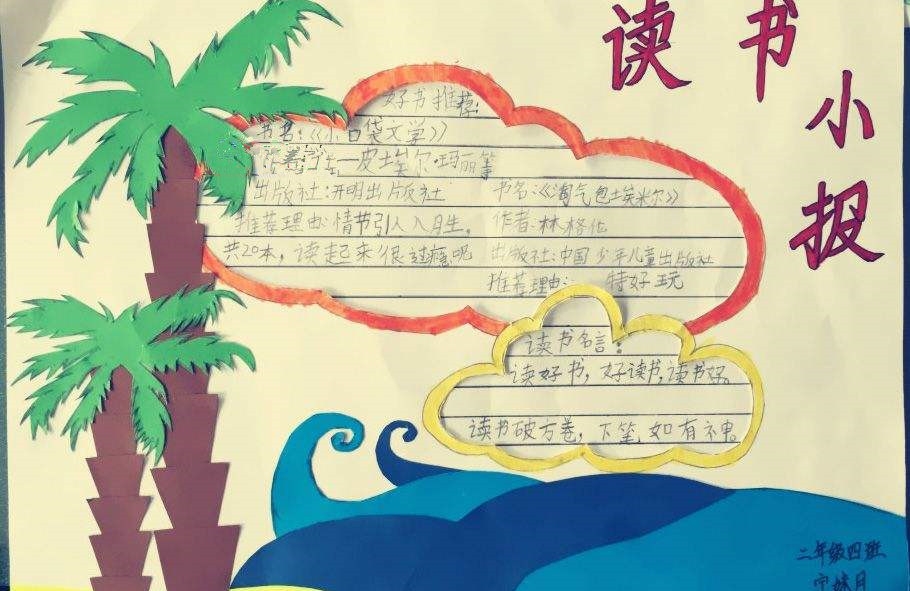 读书小报
好书推荐:
书名:《小口袋文学》
皮埃尔·玛丽等
出版社:开明出版社
推荐理由:情节引人入月生,
共20本,读起来很过瘾呢
书名:《淘气包埃米尔》
作者:林格伦
出版社:中国少年儿童出版社
推荐理由: 特好玩
读书名言:
读好书,好读书,读书好。
读书破万卷,下笔如有神。
二年级四班